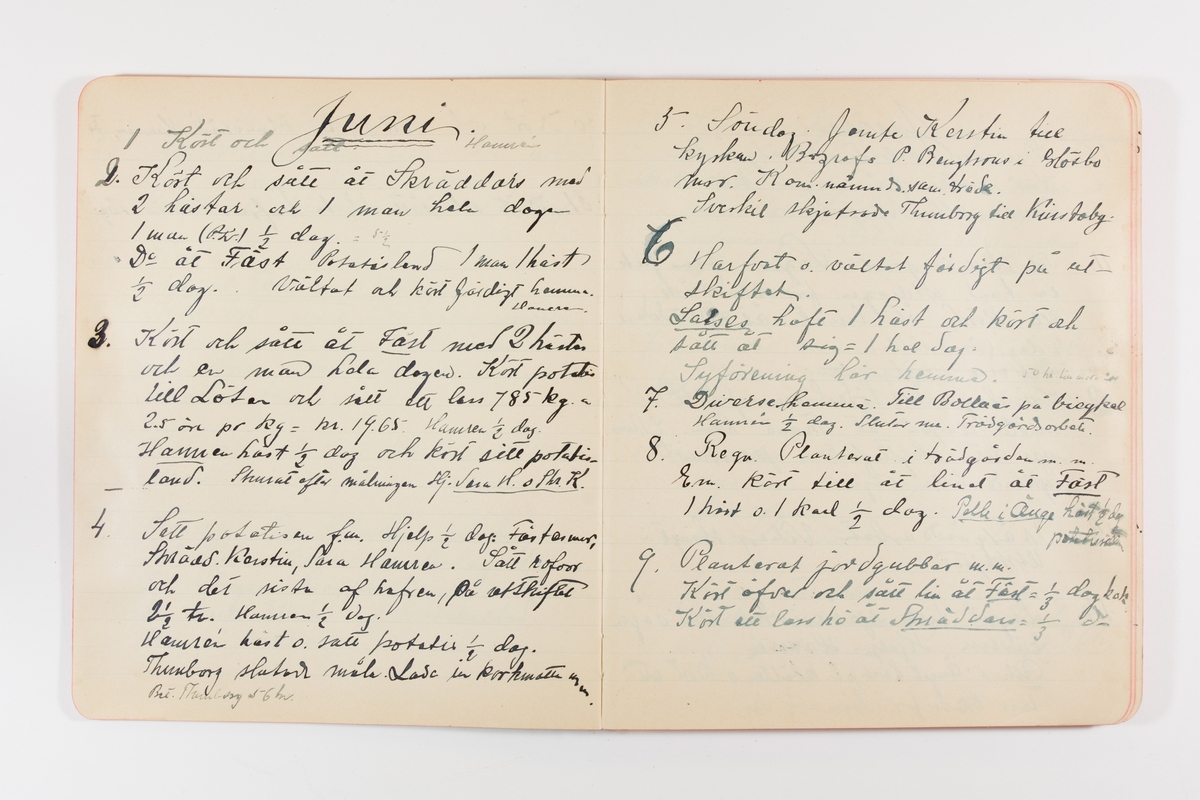 Juni.
1 Kört och sått. Hamrén
2. Kört och sått åt Skräddars med
2 hästar och 1 man hela dagen
1 man (P.K.) 1/2 dag.
Do åt Fäst Potatisland 1 man 1 häst
1/2 dag. Vältat och kört färdigt hemma.
3. Kört och sått åt Fäst med 2 hästar
och en man hela dagen. Kört potatis
till Löten och sått ett lass 785 kg. a
2.5 öre pr kg = kr. 19.65. Hamren 1/2 dag.
Hamren häst 1/2 dag och kört sitt potatis-
land. Skurat efter målningen Hj. Sara H. o Skr. K.
4. Satt potatisen f.m. Hjelp 1/2 dag: Fästesmor,
Skrädd. Kerstin, Sara Hamren. Sått
och det sista af hafren, på utskiftet
2 1/2 tr. Hamren 1/2 dag.
Hamrén häst o. satt potatis 1/2 dag.
Thunborg slutade måla. Lade in korkmatta m.m.
Bet. Thunborg 56 kr.
5. Söndag. Jemte Kerstin till
kyrkan. Begrafn. P. Bengtsons i Glösbo
mor. Kom. nämnds. sam. träde.
Sverkil skjutsade Thunborg till Kinstaby.
6 Harfvat o. vältat färdigt på ut-
skiftet.
Lasses haft 1 häst och kört och
sått åt sig = 1 hel dag.
Syförening här hemma.
7. Diverse hemma. Till Bollnäs på bicykel
Hamrén 1/2 dag. Slutar nu. Trädgårdsarbete.
8. Regn. Planterat i trädgården m. m.
Em. kört till åt linet åt Fäst
1 häst o. 1 karl 1/2 dag. Pelle i Änge häst 1/2 dag
9. Planterat jordgubbar m.m.
Kört öfver och sått lin åt Fäst = 1/3 dag
Kört ett lass hö åt Skräddars = 1/3 d-